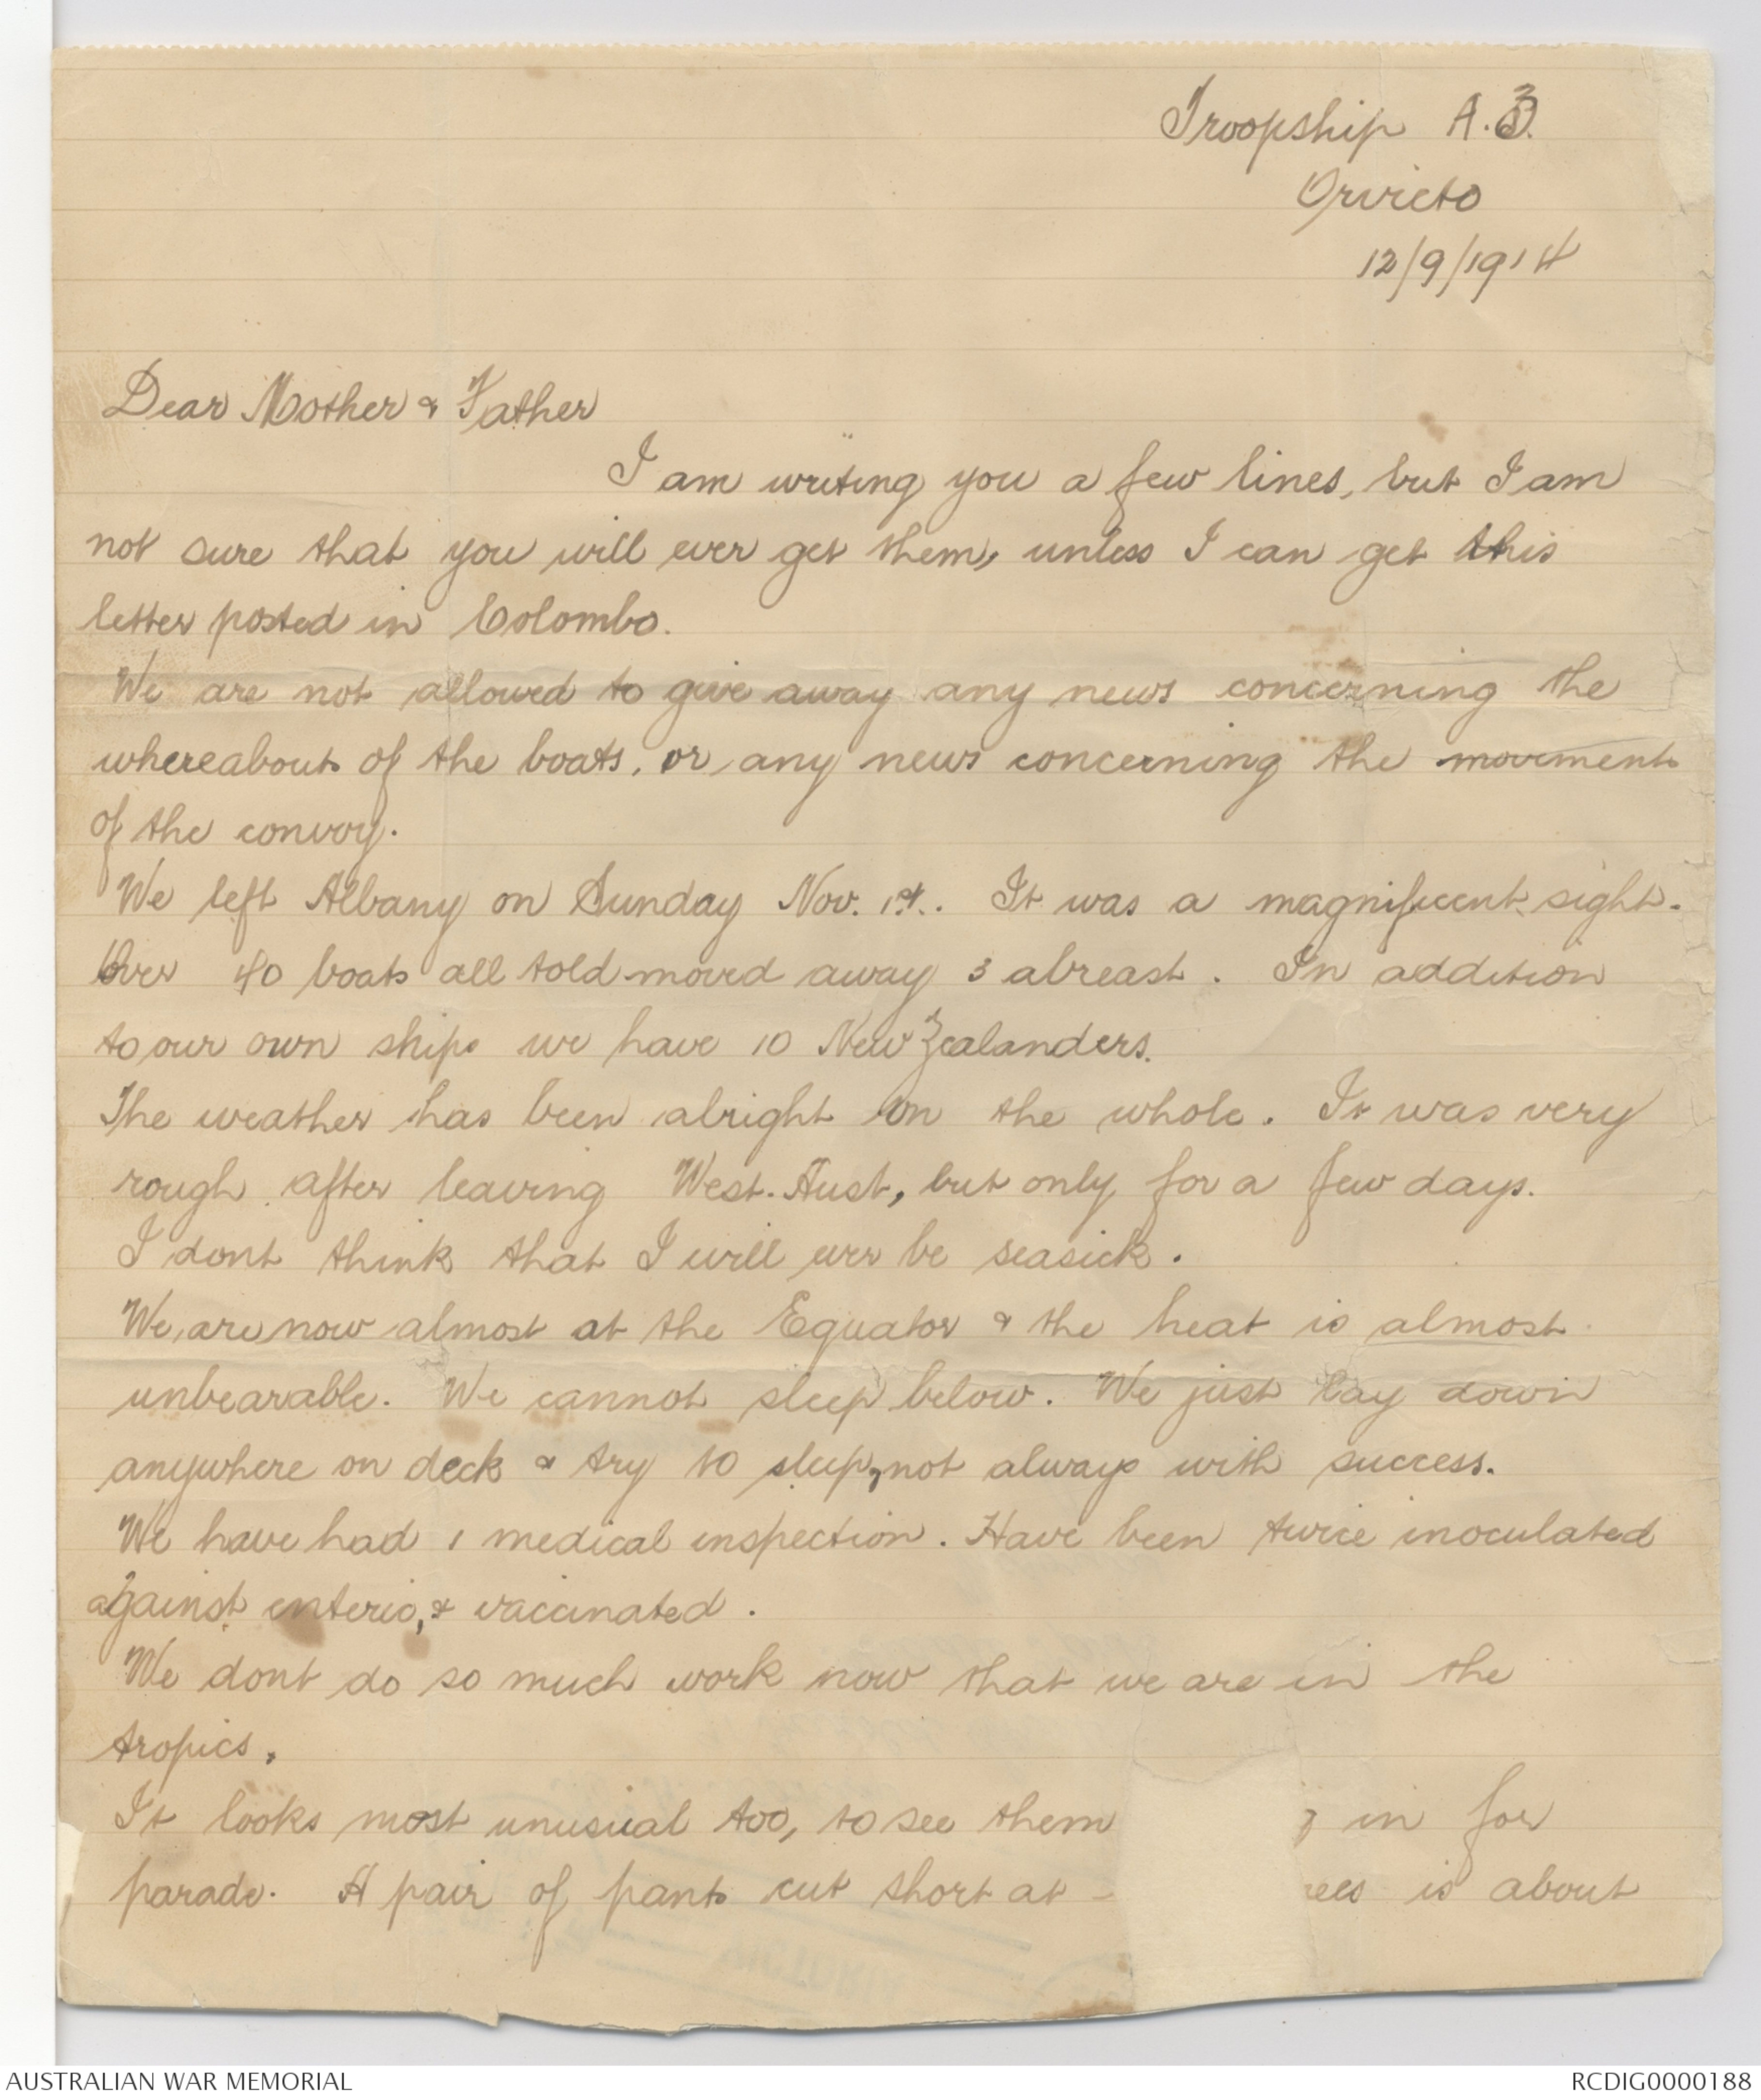 Troopship A.3.
Orvieto
12/9/1914
Dear Mother & Father
I am writing you a few lines, but I am
not sure that you will ever get them, unless I can get this
letter posted in Colombo.
We are not allowed to give away any news concerning the
whereabouts of the boats, or any news concerning the movements
of the convoy.
We left Albany on Sunday Nov. 1st. It was a magnificent sight.
Over 40 boats all told moved away 3 abreast. In addition
to our own ships we have 10 New Zealanders.
The weather has been alright on the whole. It was very
rough after leaving West. Aust, but only for a few days.
I dont think that I will ever be seasick.
We are now almost at the Equator & the heat is almost
unbearable. We cannot sleep below. We just lay down
anywhere on deck & try to sleep, not always with success.
We have had 1 medical inspection. Have been twice inoculated
against enteric, & vaccinated.
We dont do so much work now that we are in the
tropics.
It looks most unusual too, to see them in for
parade. A pair of pants cut short at is about
AUSTRALIAN WAR MEMORIAL
RCDIG0000188